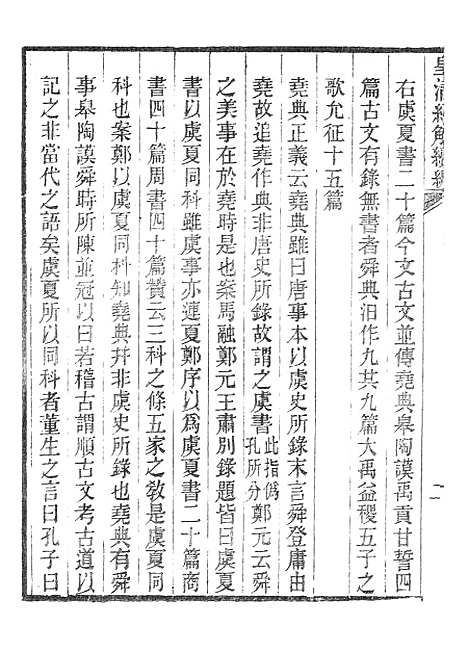 皇清經解續編
右虞夏書二十篇今文古文並傳堯典皋陶謨禹貢甘誓四
篇古文有錄無書者舜典汩作九共九篇大禹益稷五子之
歌允征十五篇
堯典正義云堯典雖曰唐事本以虞史所錄末言舜登庸由
堯故追堯作典非唐史所錄故謂之虞書此指僞孔所分鄭元云舜
之美事在於堯時是也案馬融鄭元王肅別錄題皆曰虞夏
書以虞夏同科雖虞事亦連夏鄭序以爲虞夏書二十篇商
書四十篇周書四十篇贊云三科之條五家之敎是虞夏同
科也案鄭以虞夏同科知堯典幷非虞史所錄也堯典有舜
事皋陶謨舜時所陳並冠以曰若稽古謂順古文考古道以
記之非當代之語矣虞夏所以同科者董生之言曰孔子曰